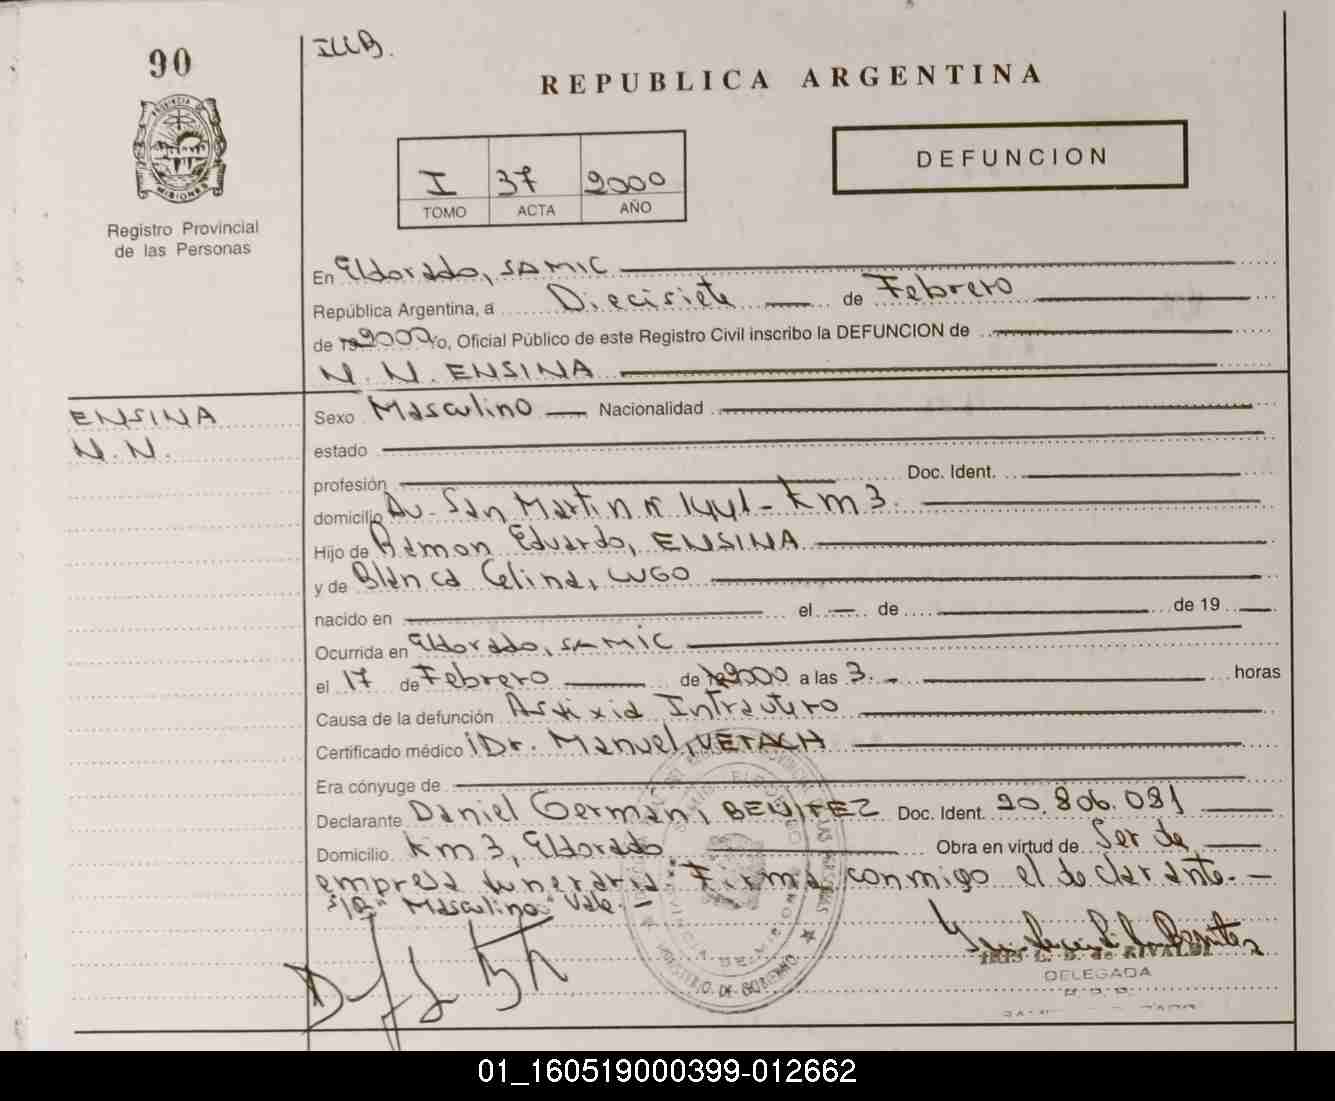 90
ILLB.
REPUBLICA ARGENTINA
PROVINCIA DE
MISIONES
Registro Provincial
de las Personas
I 37 2000
TOMO ACTA AÑO
DEFUNCION
En Eldorado, SAMIC
República Argentina, a Diecisiete de Febrero
de 2000 Yo, Oficial Público de este Registro Civil inscribo la DEFUNCION de
N. N. ENSINA
ENSINA
N. N.
Sexo Masculino Nacionalidad
estado
profesión Doc. Ident.
domicilio Av. San Martin nº 1441 - Km 3.
Hijo de Ramon Eduardo, ENSINA
y de Blanca Celina, LUGO
nacido en el de de 19
Ocurrida en Eldorado, SAMIC
el 17 de Febrero de 2000 a las 3. horas
Causa de la defunción Asfixia Intrautero
Certificado médico Dr. Manuel, VETACH
Era cónyuge de
Declarante Daniel German, BENITEZ Doc. Ident. 20.806.081
Domicilio Km 3, Eldorado Obra en virtud de Ser de
empresa funeraria. Firma conmigo el declarante.-
"Masculino" Vale.-
DELEGADA
MINISTERIO DE GOBIERNO
PROVINCIA DE MISIONES
01_160519000399-012662